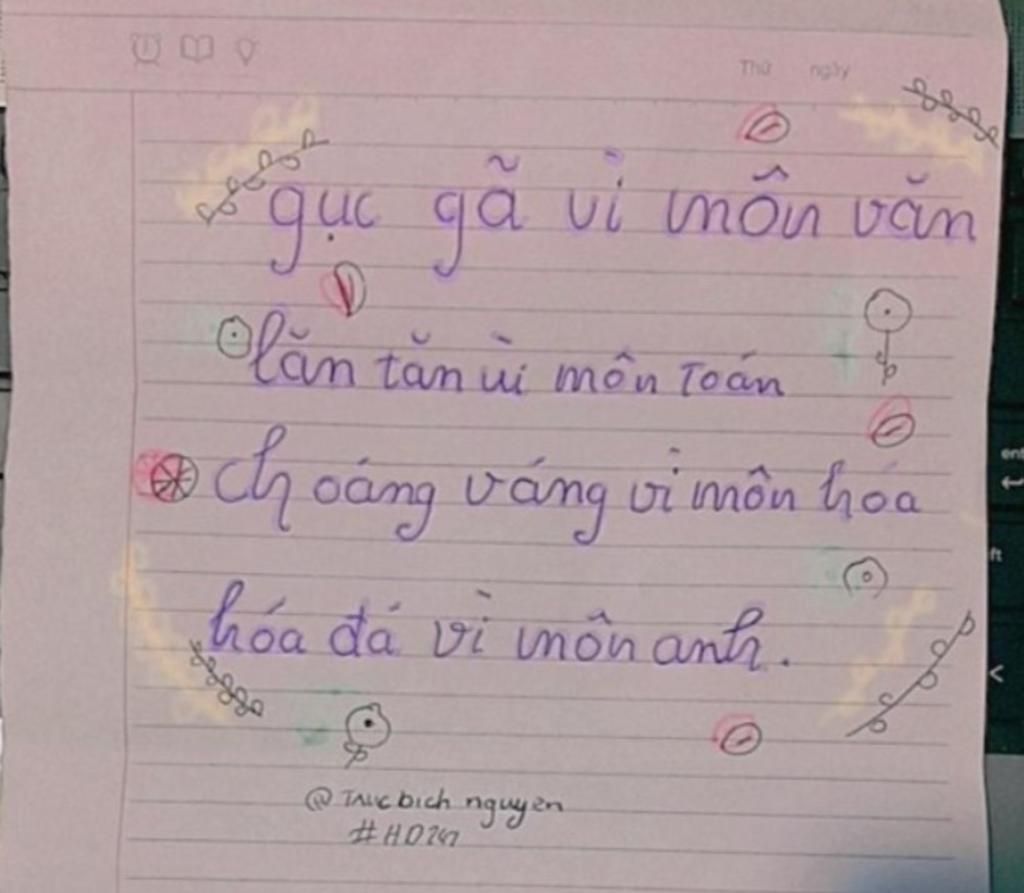 Thứ ngày
gục gã vì môn văn
lăn tăn vì môn Toán
choáng váng vì môn hóa
hóa đá vì môn anh.
@Trucbich nguyen
ent
ft
<